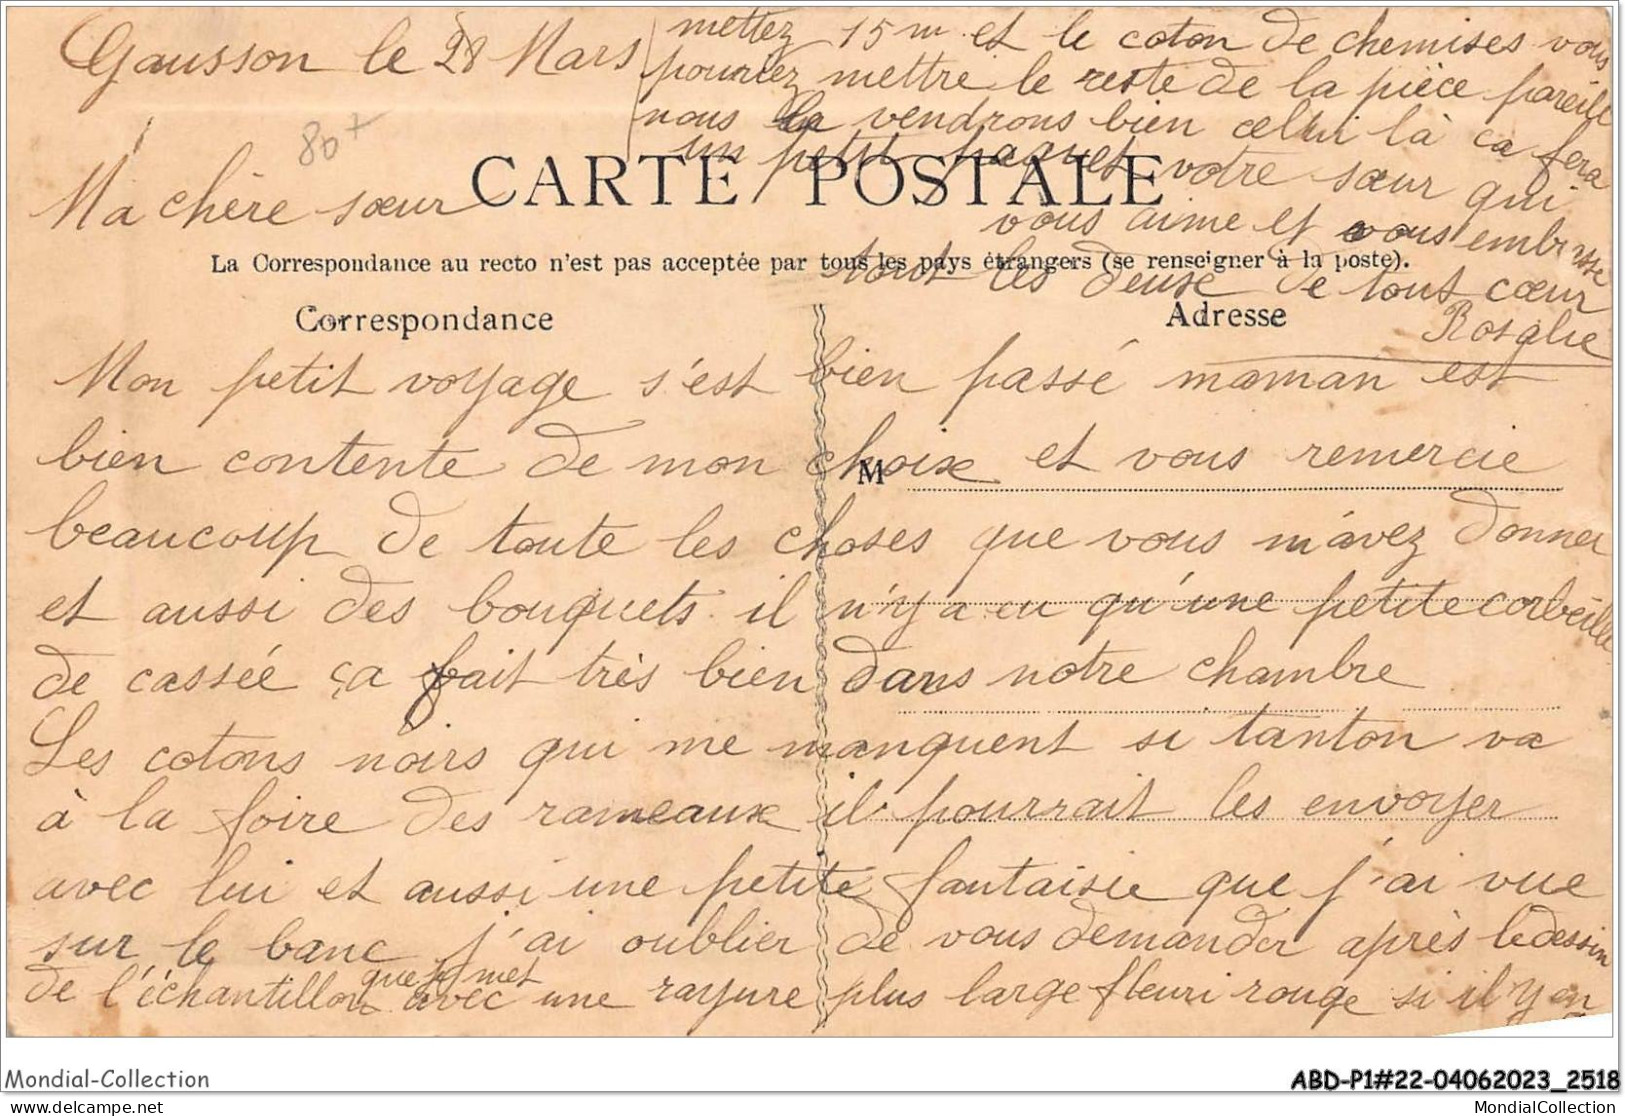 Gausson le 28 Mars
80+
Ma chère sœur
CARTE POSTALE
La Correspondance au recto n'est pas acceptée par tous les pays étrangers (se renseigner à la poste).
Correspondance
Adresse
M
Mon petit voyage s'est bien passé maman est
bien contente de mon choix et vous remercie
beaucoup de toute les choses que vous m'avez donner
et aussi des bouquets il n'y a eu qu'une petite corbeille
de cassée ça fait très bien dans notre chambre
Les cotons noirs qui me manquent si tanton va
à la foire des rameaux il pourrait les envoyer
avec lui et aussi une petite fantaisie que j'ai vue
sur le banc j'ai oublier de vous demander après le dessin
de l'échantillon que je met avec une rayure plus large fleuri rouge si il y en
mettez 15 m et le coton de chemises vous
pourriez mettre le reste de la pièce pareille
nous la vendrons bien celui là ca fera
un petit paquet votre sœur qui
vous aime et vous embrasse
tout les deux de tout cœur
Rosalie
Mondial-Collection
ABD-P1#22-04062023_2518
delcampe.net
MondialCollection